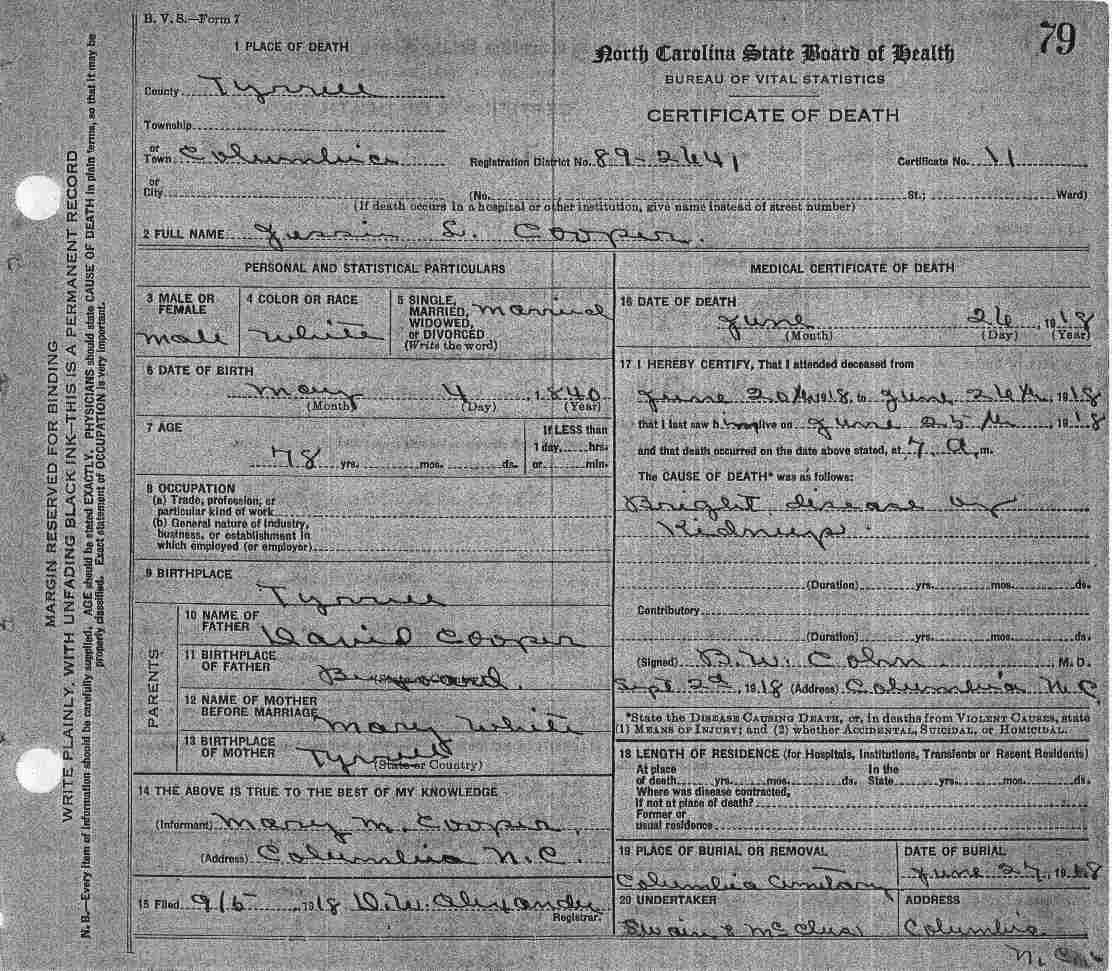 B. V. S.—Form 7
79
1 PLACE OF DEATH
North Carolina State Board of Health
BUREAU OF VITAL STATISTICS
CERTIFICATE OF DEATH
County Tyrrell
Township
or Town Columbia Registration District No. 89-2641 Certificate No. 11
or City (No. St.; Ward)
(If death occurs in a hospital or other institution, give name instead of street number)
2 FULL NAME Jessie L. Cooper.
PERSONAL AND STATISTICAL PARTICULARS
3 MALE OR FEMALE
male
4 COLOR OR RACE
White
5 SINGLE, MARRIED, WIDOWED, or DIVORCED (Write the word)
Married
6 DATE OF BIRTH
May 4 , 1840
(Month) (Day) (Year)
7 AGE
78 yrs. mos. ds.
If LESS than
1 day, hrs.
or min.
8 OCCUPATION
(a) Trade, profession, or
particular kind of work
(b) General nature of industry,
business, or establishment in
which employed (or employer)
9 BIRTHPLACE
Tyrrell
PARENTS
10 NAME OF FATHER
David Cooper
11 BIRTHPLACE OF FATHER
12 NAME OF MOTHER BEFORE MARRIAGE
Mary White
13 BIRTHPLACE OF MOTHER
Tyrrell
(State or Country)
14 THE ABOVE IS TRUE TO THE BEST OF MY KNOWLEDGE
(Informant) Mary M. Cooper,
(Address) Columbia N.C.
15 Filed 9/5 , 1918 D.W. Alexander
Registrar.
MEDICAL CERTIFICATE OF DEATH
16 DATE OF DEATH
June 26 , 1918
(Month) (Day) (Year)
17 I HEREBY CERTIFY, That I attended deceased from
June 20th, 1918, to June 26th, 1918
that I last saw him alive on June 25th, 1918
and that death occurred on the date above stated, at 7 A. m.
The CAUSE OF DEATH* was as follows:
Bright disease of
Kidneys.
(Duration) yrs. mos. ds.
Contributory
(Duration) yrs. mos. ds.
(Signed) B.W. Cohn , M. D.
Sept 2d, 1918 (Address) Columbia N.C.
*State the DISEASE CAUSING DEATH, or, in deaths from VIOLENT CAUSES, state
(1) MEANS OF INJURY; and (2) whether ACCIDENTAL, SUICIDAL, or HOMICIDAL.
18 LENGTH OF RESIDENCE (for Hospitals, Institutions, Transients or Recent Residents)
At place of death yrs. mos. ds. In the State yrs. mos. ds.
Where was disease contracted,
If not at place of death?
Former or
usual residence
19 PLACE OF BURIAL OR REMOVAL
Columbia Cemetary
DATE OF BURIAL
June 27, 1918
20 UNDERTAKER
Swain &
ADDRESS
Columbia
N.C.
MARGIN RESERVED FOR BINDING
WRITE PLAINLY, WITH UNFADING BLACK INK—THIS IS A PERMANENT RECORD
N. B.—Every item of information should be carefully supplied. AGE should be stated EXACTLY. PHYSICIANS should state CAUSE OF DEATH in plain terms, so that it may be
properly classified. Exact statement of OCCUPATION is very important.